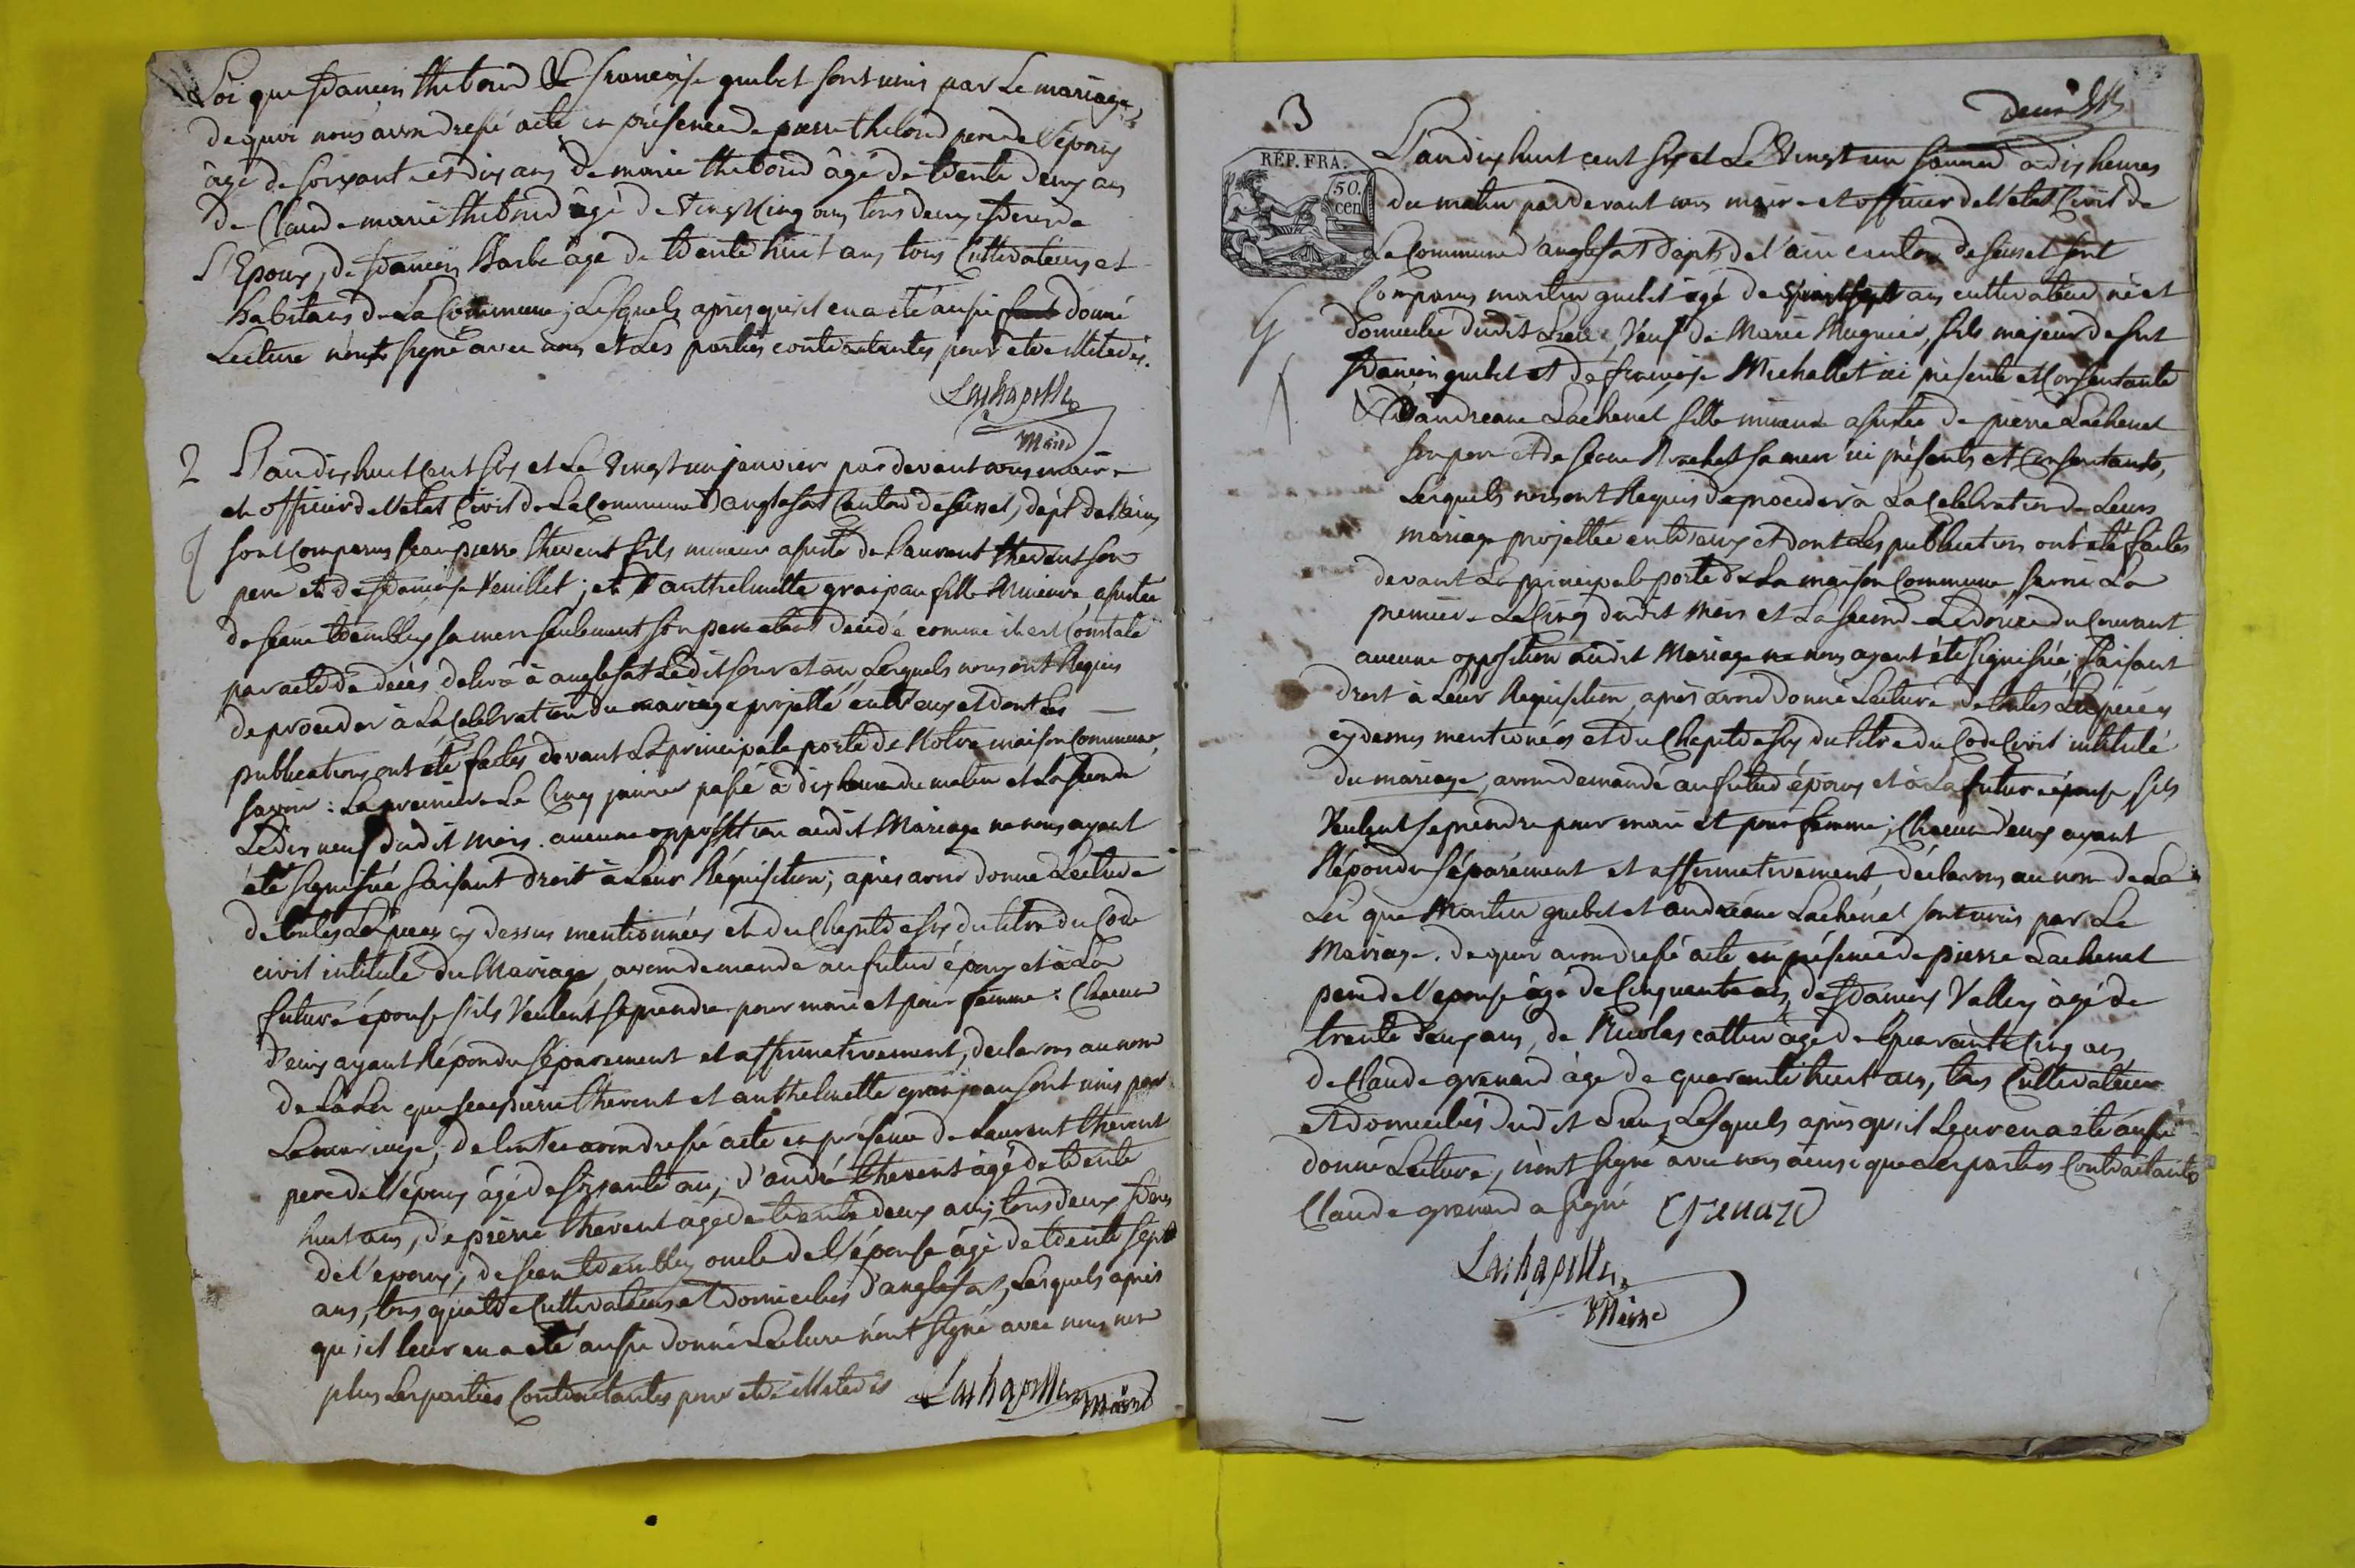 Loi que françois thiboud & francoise gubet sont unis par Le mariage,
de quoi nous avons dressé acte en présence de pierre thiboud pere de l'époux
âgé de soixante et dix ans de marie thiboud âgé de trente deux ans
de Claude marie thiboud âgé de vingt cinq ans tous deux freres de
L'Epoux, de françois Barbe âgé de trente huit ans tous Cultivateurs et
habitans de La Commune ; Lesquels après qu'il en a été aussi donné
Lecture n'ont signé avec nous et Les parties contractantes pour etre illitérés.
Lachapelle
Maire
2 L'an dix huit Cent six et Le vingt un janvier par devant nous maire
et officier de l'état Civil de La Commune d'anglefort Canton de seissel, dépt de l'ain,
sont Comparus jean pierre thevent fils mineur assisté de Laurent thevent son
pere et de françoise Venillet ; et d'anthelmette grosjean fille Mineure assistée
de jeanne trembley sa mere seulement son pere etant décédé comme il est Constaté
par acte de décès délivré à anglefort Ledit jour et an Lesquels nous ont Requis
de proceder à La Célébration du mariage projetté entr'eux et dont Les
publications ont été faites devant La principale porte de Notre maison Commune,
savoir : La premiere Le Cinq janvier passé à dix heures du matin et La seconde
Le dix neuf dudit mois. aucune opposition audit Mariage ne nous ayant
été signifiée faisant droit à Leur Réquisition ; après avoir donné Lecture
de toutes Les pieces cy dessus mentionnées et du Chapitre six du titre du Code
civil intitulé du Mariage, avons demandé au futur époux et à La
future épouse s'ils Veulent se prendre pour mari et pour femme : Chacun
d'eux ayant Répondu séparement et affirmativement, declarons au nom
de La Loi que jean pierre thevent et anthelmette grosjean sont unis par
Le mariage, avons dressé acte en présence de Laurent thevent
pere de l'époux âgé de soixante ans, d'andré thevent âgé de trente
huit ans, de pierre thevent agé de trente deux ans, tous deux freres
de l'epoux, de jean trembley oncle de l'épouse âgé de trente sept
ans, tous quatre Cultivateurs et domiciliés d'anglefort, Lesquels après
qu'il leur en a été aussi donné Lecture n'ont signé avec nous non
plus Les parties Contractantes pour etre illitérés Lachapelle Maire
3
REP. FRA.
50. cen
L'an dix huit cent six et Le Vingt un janvier à dix heures
du matin par devant nous maire et officier de l'état Civil de
La Commune d'anglefort dépt de l'ain canton de seissel sont
Comparus martin gubet âgé de ans cultivateur né et
domicilié dudit Lieu, Veuf de Marie Mugnier, fils majeur de fut
françois gubet et de francoise Michallet ici présente et Consentante
& D'andreane Lachenal fille mineure assistée de pierre Lachenal
son pere et de jeane sa mere ici présents et Consentants,
Lesquels nous ont Requis de proceder à La Celebration de Leurs
mariage projettée entr'eux et dont Les publication ont été faites
devant La principale porte de La maison Commune, savoir La
premiere Le Cinq dudit Mois et La seconde Le douze du Courant
aucune opposition audit Mariage ne nous ayant été signifiée ; faisant
droit à Leur Requisition, après avoir donné Lecture de toutes Les pieces
cy dessus mentionées et du Chapitre six du titre du Code Civil intitulé
du mariage, avons demandé au futur époux et à La future épouse s'ils
Veulent se prendre pour mari et pour femme ; Chacun d'eux ayant
Répondu séparement et affirmativement, déclarons au nom de La
Loi que Martin gubet et andréane Lachenal sont unis par Le
Mariage. de quoi avons dressé acte en présence de pierre Lachenal
pere de l'epouse âgé de Cinquante ans, de françois Vallin âgé de
trente deux ans, de Nicolas cattin âgé de quarante Cinq ans
de Claude grenard âgé de quarante huit ans, tous Cultivateurs
et domiciliés dudit Lieu, Lesquels après qu'il Leur en a été aussi
donné Lecture, n'ont signé avec nous ainsi que Les parties Contractantes
Claude grenard a signé C Grenard
Lachapelle
Maire